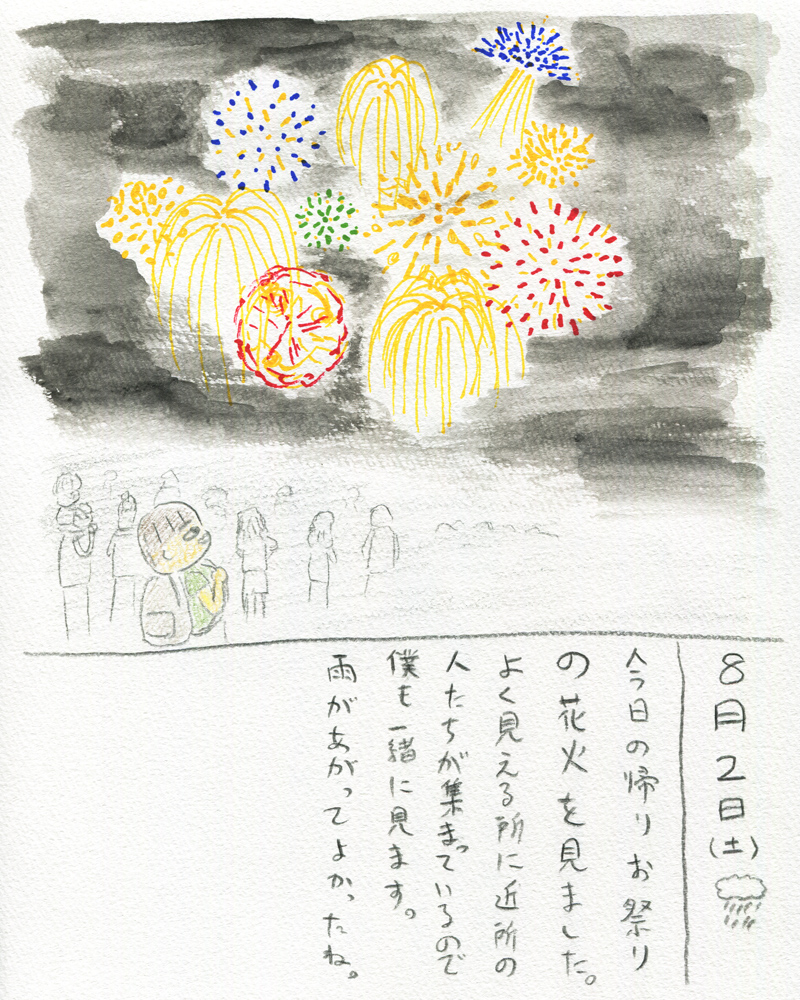 8月2日(土)
今日の帰りお祭り
の花火を見ました。
よく見える所に近所の
人たちが集まっているので
僕も一緒に見ます。
雨があがってよかったね。